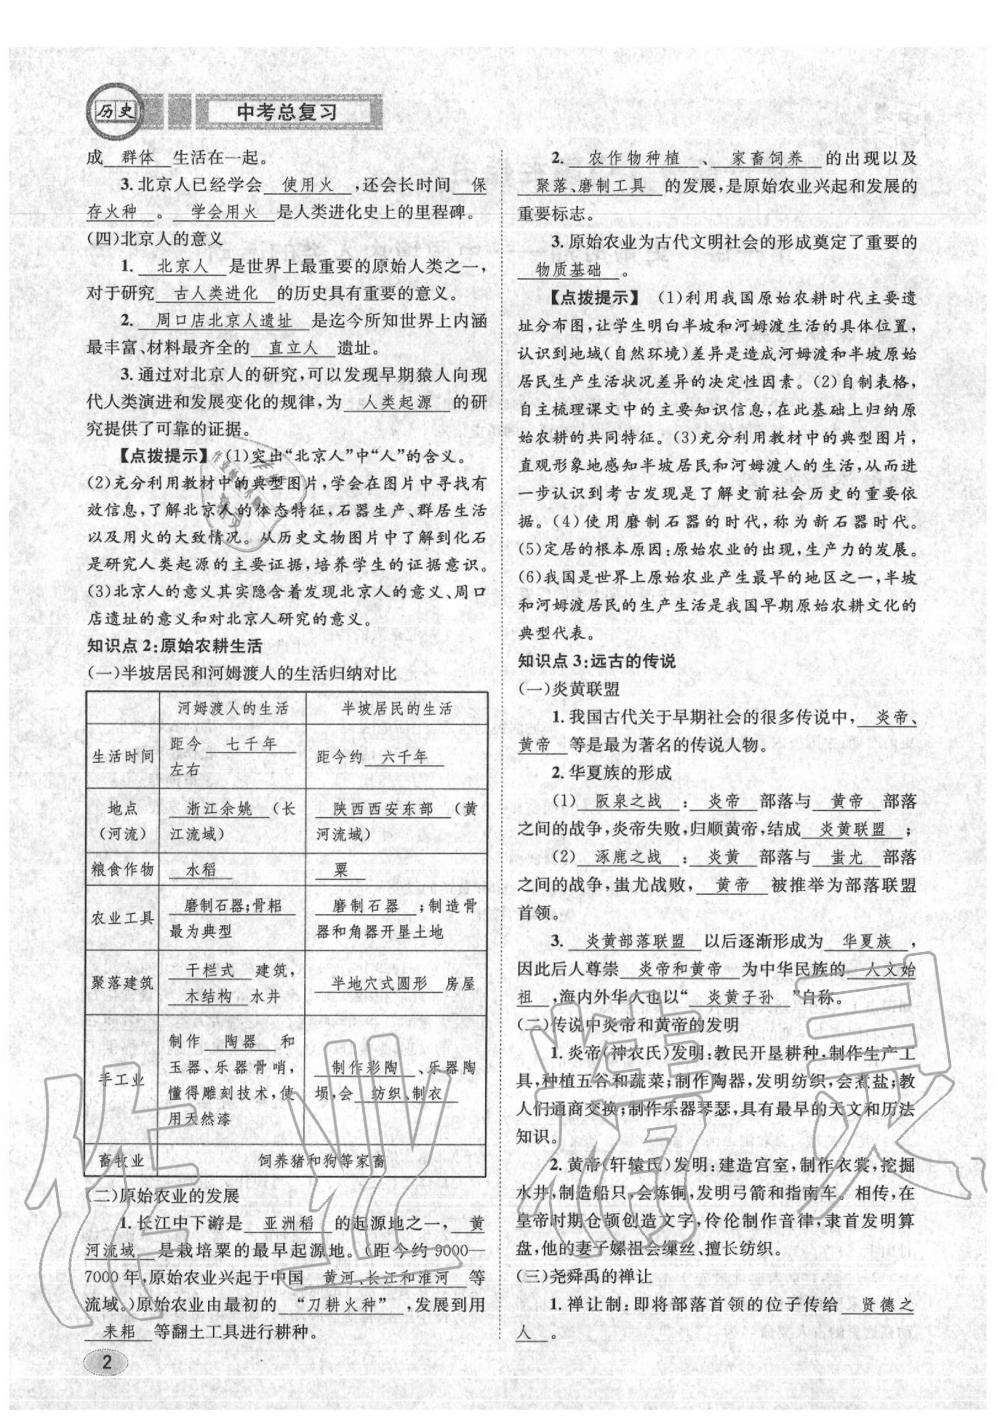 历史
中考总复习
成 群体 生活在一起。
3.北京人已经学会 使用火 ,还会长时间 保
存火种 。 学会用火 是人类进化史上的里程碑。
(四)北京人的意义
1. 北京人 是世界上最重要的原始人类之一,
对于研究 古人类进化 的历史具有重要的意义。
2. 周口店北京人遗址 是迄今所知世界上内涵
最丰富、材料最齐全的 直立人 遗址。
3.通过对北京人的研究,可以发现早期猿人向现
代人类演进和发展变化的规律,为 人类起源 的研
究提供了可靠的证据。
【点拨提示】(1)突出“北京人”中“人”的含义。
(2)充分利用教材中的典型图片,学会在图片中寻找有
效信息,了解北京人的体态特征,石器生产、群居生活
以及用火的大致情况。从历史文物图片中了解到化石
是研究人类起源的主要证据,培养学生的证据意识。
(3)北京人的意义其实隐含着发现北京人的意义、周口
店遗址的意义和对北京人研究的意义。
知识点2:原始农耕生活
(一)半坡居民和河姆渡人的生活归纳对比
河姆渡人的生活 半坡居民的生活
生活时间 距今 七千年 左右 距今约 六千年
地点(河流) 浙江余姚 (长江流域) 陕西西安东部 (黄河流域)
粮食作物 水稻 粟
农业工具 磨制石器;骨耜 最为典型 磨制石器 ;制造骨器和角器开垦土地
聚落建筑 干栏式 建筑, 木结构 水井 半地穴式圆形 房屋
手工业 制作 陶器 和玉器、乐器骨哨,懂得雕刻技术,使用天然漆 制作彩陶 、乐器陶埙,会 纺织、制衣
畜牧业 饲养猪和狗等家畜
(二)原始农业的发展
1.长江中下游是 亚洲稻 的起源地之一, 黄
河流域 是栽培粟的最早起源地。(距今约9000—
7000年,原始农业兴起于中国 黄河、长江和淮河 等
流域。)原始农业由最初的 “刀耕火种” ,发展到用
耒耜 等翻土工具进行耕种。
2. 农作物种植 、 家畜饲养 的出现以及
聚落、磨制工具 的发展,是原始农业兴起和发展的
重要标志。
3.原始农业为古代文明社会的形成奠定了重要的
物质基础 。
【点拨提示】(1)利用我国原始农耕时代主要遗
址分布图,让学生明白半坡和河姆渡生活的具体位置,
认识到地域(自然环境)差异是造成河姆渡和半坡原始
居民生产生活状况差异的决定性因素。(2)自制表格,
自主梳理课文中的主要知识信息,在此基础上归纳原
始农耕的共同特征。(3)充分利用教材中的典型图片,
直观形象地感知半坡居民和河姆渡人的生活,从而进
一步认识到考古发现是了解史前社会历史的重要依
据。(4)使用磨制石器的时代,称为新石器时代。
(5)定居的根本原因:原始农业的出现,生产力的发展。
(6)我国是世界上原始农业产生最早的地区之一,半坡
和河姆渡居民的生产生活是我国早期原始农耕文化的
典型代表。
知识点3:远古的传说
(一)炎黄联盟
1.我国古代关于早期社会的很多传说中, 炎帝、
黄帝 等是最为著名的传说人物。
2.华夏族的形成
(1) 阪泉之战 : 炎帝 部落与 黄帝 部落
之间的战争,炎帝失败,归顺黄帝,结成 炎黄联盟 ;
(2) 涿鹿之战 : 炎黄 部落与 蚩尤 部落
之间的战争,蚩尤战败, 黄帝 被推举为部落联盟
首领。
3. 炎黄部落联盟 以后逐渐形成为 华夏族 ,
因此后人尊崇 炎帝和黄帝 为中华民族的 人文始
祖 ,海内外华人也以“ 炎黄子孙 ”自称。
(二)传说中炎帝和黄帝的发明
1.炎帝(神农氏)发明:教民开垦耕种,制作生产工
具,种植五谷和蔬菜;制作陶器,发明纺织,会煮盐;教
人们通商交换;制作乐器琴瑟,具有最早的天文和历法
知识。
2.黄帝(轩辕氏)发明:建造宫室,制作衣裳,挖掘
水井,制造船只,会炼铜,发明弓箭和指南车。相传,在
皇帝时期仓颉创造文字,伶伦制作音律,隶首发明算
盘,他的妻子嫘祖会缫丝、擅长纺织。
(三)尧舜禹的禅让
1.禅让制:即将部落首领的位子传给 贤德之
人 。
2
作业精灵